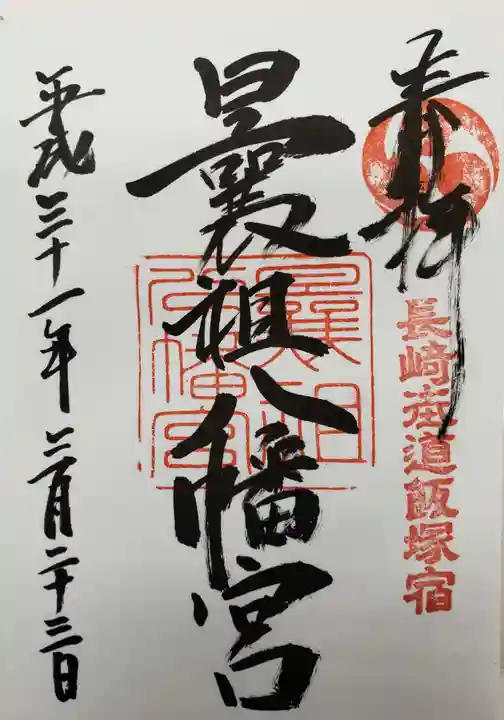 奉拝
長崎街道飯塚宿
曩祖八幡宮
曩祖八幡宮
平成三十一年三月二十三日